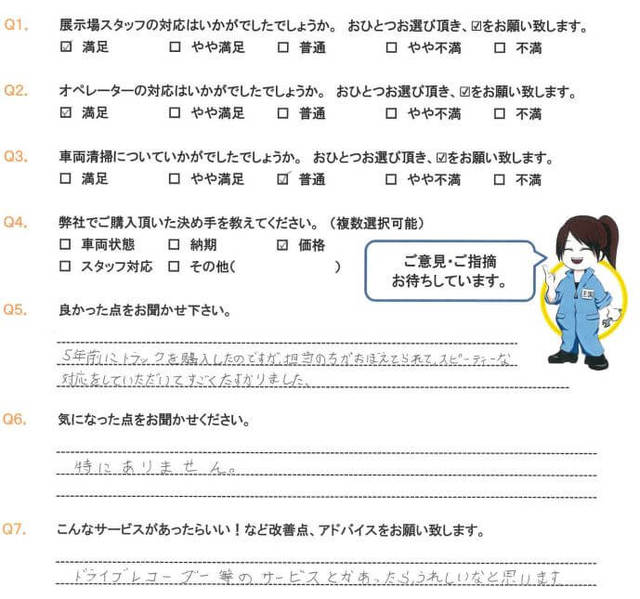 Q1. 展示場スタッフの対応はいかがでしたでしょうか。 おひとつお選び頂き、☑をお願い致します。
☑ 満足 ☐ やや満足 ☐ 普通 ☐ やや不満 ☐ 不満
Q2. オペレーターの対応はいかがでしたでしょうか。 おひとつお選び頂き、☑をお願い致します。
☑ 満足 ☐ やや満足 ☐ 普通 ☐ やや不満 ☐ 不満
Q3. 車両清掃についていかがでしたでしょうか。 おひとつお選び頂き、☑をお願い致します。
☐ 満足 ☐ やや満足 ☑ 普通 ☐ やや不満 ☐ 不満
Q4. 弊社でご購入頂いた決め手を教えてください。（複数選択可能）
☐ 車両状態 ☐ 納期 ☑ 価格
☐ スタッフ対応 ☐ その他( )
ご意見・ご指摘
お待ちしています。
Q5. 良かった点をお聞かせ下さい。
5年前にトラックを購入したのですが、担当の方がおぼえてられて、スピーディーな
対応をしていただいてすごくたすかりました。
Q6. 気になった点をお聞かせください。
特にありません。
Q7. こんなサービスがあったらいい！など改善点、アドバイスをお願い致します。
ドライブレコーダー等のサービスとかあったら、うれしいなと思います